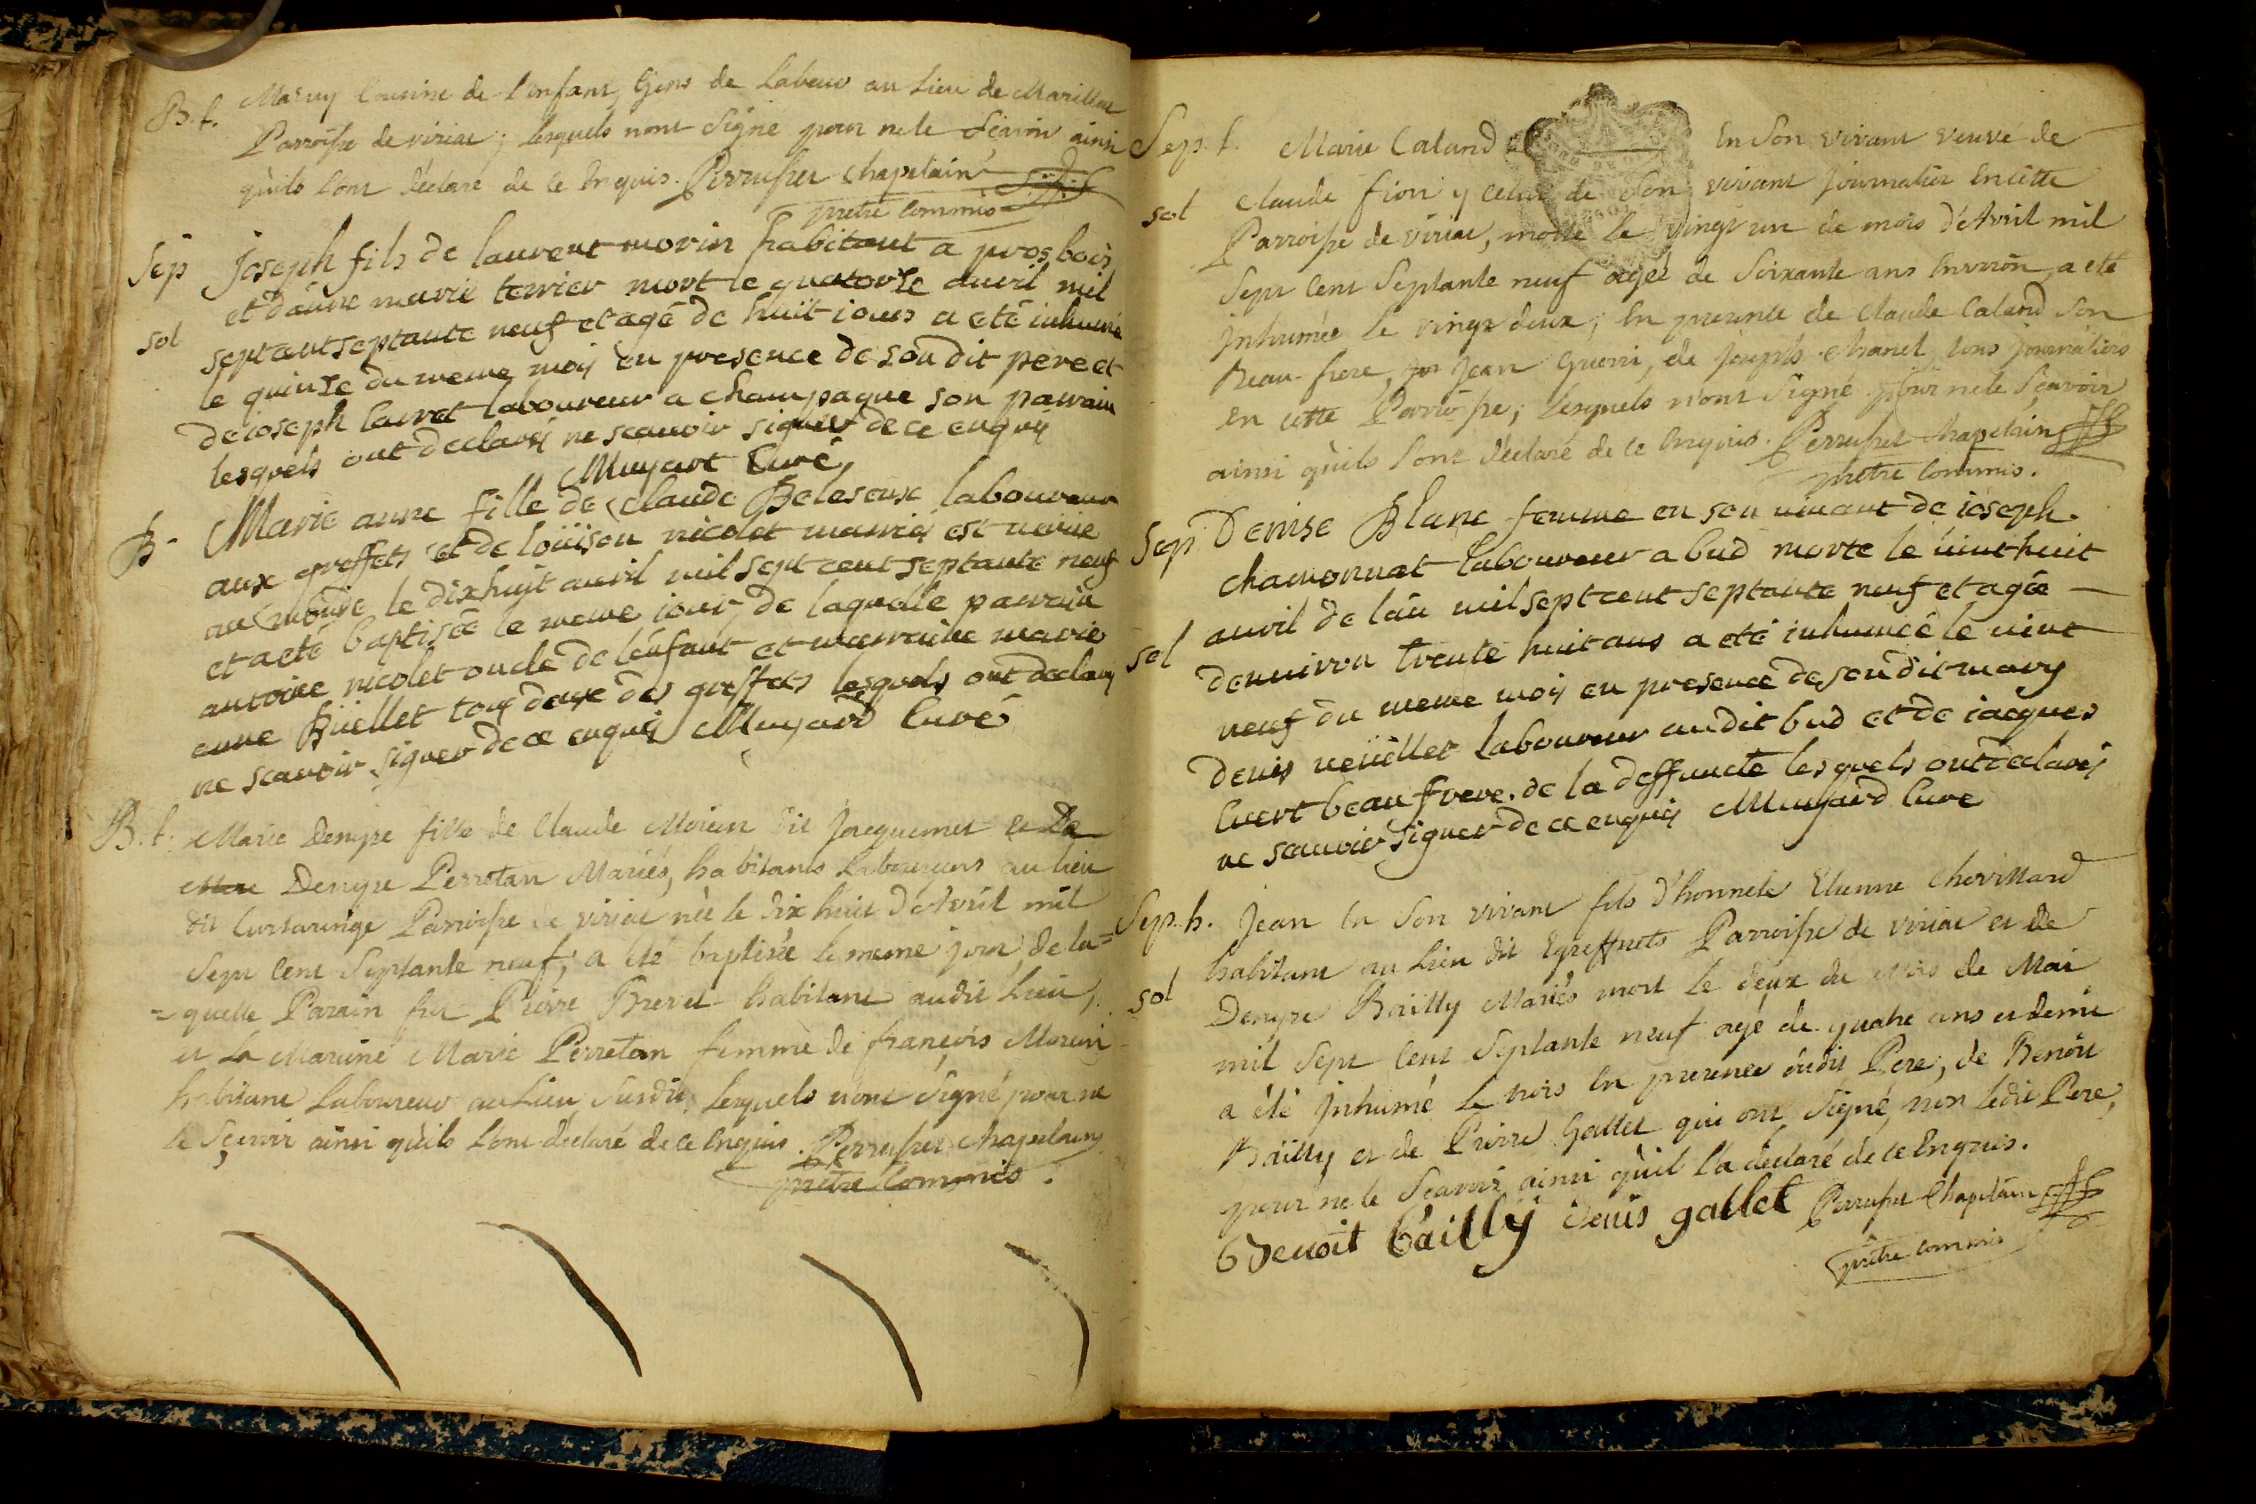 B. f. Maruy Cousine de l'enfant, Gens de Labeur au Lieu de Marillat
Parroisse de viriat; lesquels n'ont Signé pour ne le Sçavoir ainsi
qu'ils l'ont déclaré de ce Enquis. Perruset Chapelain
prêtre Commis
Sep Joseph fils de laurent morin habitant a gros bois
et d'anne marie terrier mort le quatorze auril mil
sol septcentseptante neuf et agé de huit iours a eté inhumé
le quinze du meme mois en presence de son dit pere et
de ioseph laurent laboureur a champagne son parrain
lesquels ont declarés ne scauoir signer de ce enquis
Muyart Curé
B. Marie anne fille de Claude laboureur
aux greffets et de loüison nicolet mariés est neüe
le dixhuit auril mil sept cent septante neuf
et a eté baptisée le meme iour de laquele parrain
antoine nicolet oncle de l'enfant et marraine marie
anne Büellet tous deux des greffets lesquels ont declarés
ne scauoir signer de ce enquis Muyard Curé
B. f. Marie Denyse fille de Claude Morin dit Jacquemet et De
Mar Denyse Perretan Mariés, habitans Laboureurs au lieu
dit Curtaringe Parroisse de viriat née le dix huit d'Avril mil
Sept Cent Septante neuf; a été baptisée le meme jour, de la=
=quelle Parain fut Pierre Brevet habitant audit Lieu,
et la Maraine Marie Perretan femme de françois Morin
habitant Laboureur au Lieu Susdit, Lesquels n'ont Signé pour ne
le Sçavoir ainsi qu'ils l'ont déclaré de ce Enquis. Perruset Chapelain
prêtre Commis.
Sep. f. Marie Caland En Son vivant veuve de
sol Claude fion y celui de Son vivant Journalier En cette
Parroisse de viriat, morte le vingt un de mois d'Avril mil
Sept Cent Septante neuf agée de Soixante ans Environ, a eté
Inhumée le vingt deux; En presence de Claude Caland Son
Beau-frere, Jean Guerri, de Joseph Chanel, tous Journaliers
En cette Parroisse; Lesquels n'ont Signé pour ne le Sçavoir
ainsi qu'ils l'ont déclaré de ce Enquis. Perruset Chapelain
prêtre Commis.
Sep Denise Blanc femme en son uiuant de ioseph
chamonnat laboureur a bud morte le uint huit
auril de l'an mil sept cent septante neuf et agée
sol denuiron trente huit ans a eté inhumeé le uint
neuf du meme mois en presence de son dit mary
denis neüillet laboureur audit bud et de iacques
Cuert beau frere de la deffuncte lesquels ont declarés
ne scauoir signer de ce enquis Muyard Curé
Sep. h. Jean En Son vivant fils d'honnete Etienne Chevillard
habitant au Lieu dit Egreffets Parroisse de viriat et de
sol Denyse Bailly Mariés mort le deux du Mois de Mai
mil Sept Cent Septante neuf agé de quatre ans et demie
a été Inhumé le trois En presence dudit Pere, de Benôit
Bailly et de Pierre Gallet qui ont Signé, non ledit Pere,
pour ne le Sçavoir ainsi qu'il l'a déclaré de ce Enquis.
Benoit Bailly denis gallet Perruset Chapelain
prêtre commis